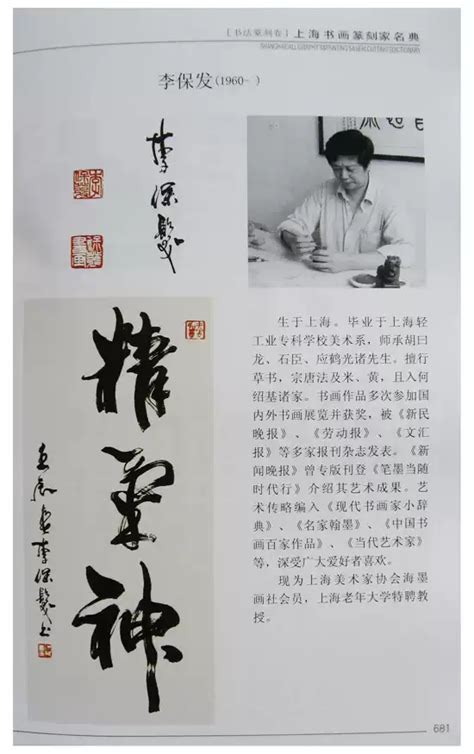 [书法篆刻卷] 上海书画篆刻家名典
李保发(1960- )
李保发
精气神
李保发书
生于上海。毕业于上海轻
工业专科学校美术系，师承胡曰
龙、石臣、应鹤光诸先生。擅行
草书，宗唐法及米、黄，且入何
绍基诸家。书画作品多次参加国
内外书画展览并获奖，被《新民
晚报》、《劳动报》、《文汇
报》等多家报刊杂志发表。《新
闻晚报》曾专版刊登《笔墨当随
时代行》介绍其艺术成果。艺
术传略编入《现代书画家小辞
典》、《名家翰墨》、《中国书
画百家作品》、《当代艺术家》
等，深受广大爱好者喜欢。
现为上海美术家协会海墨
画社会员，上海老年大学特聘教
授。
681